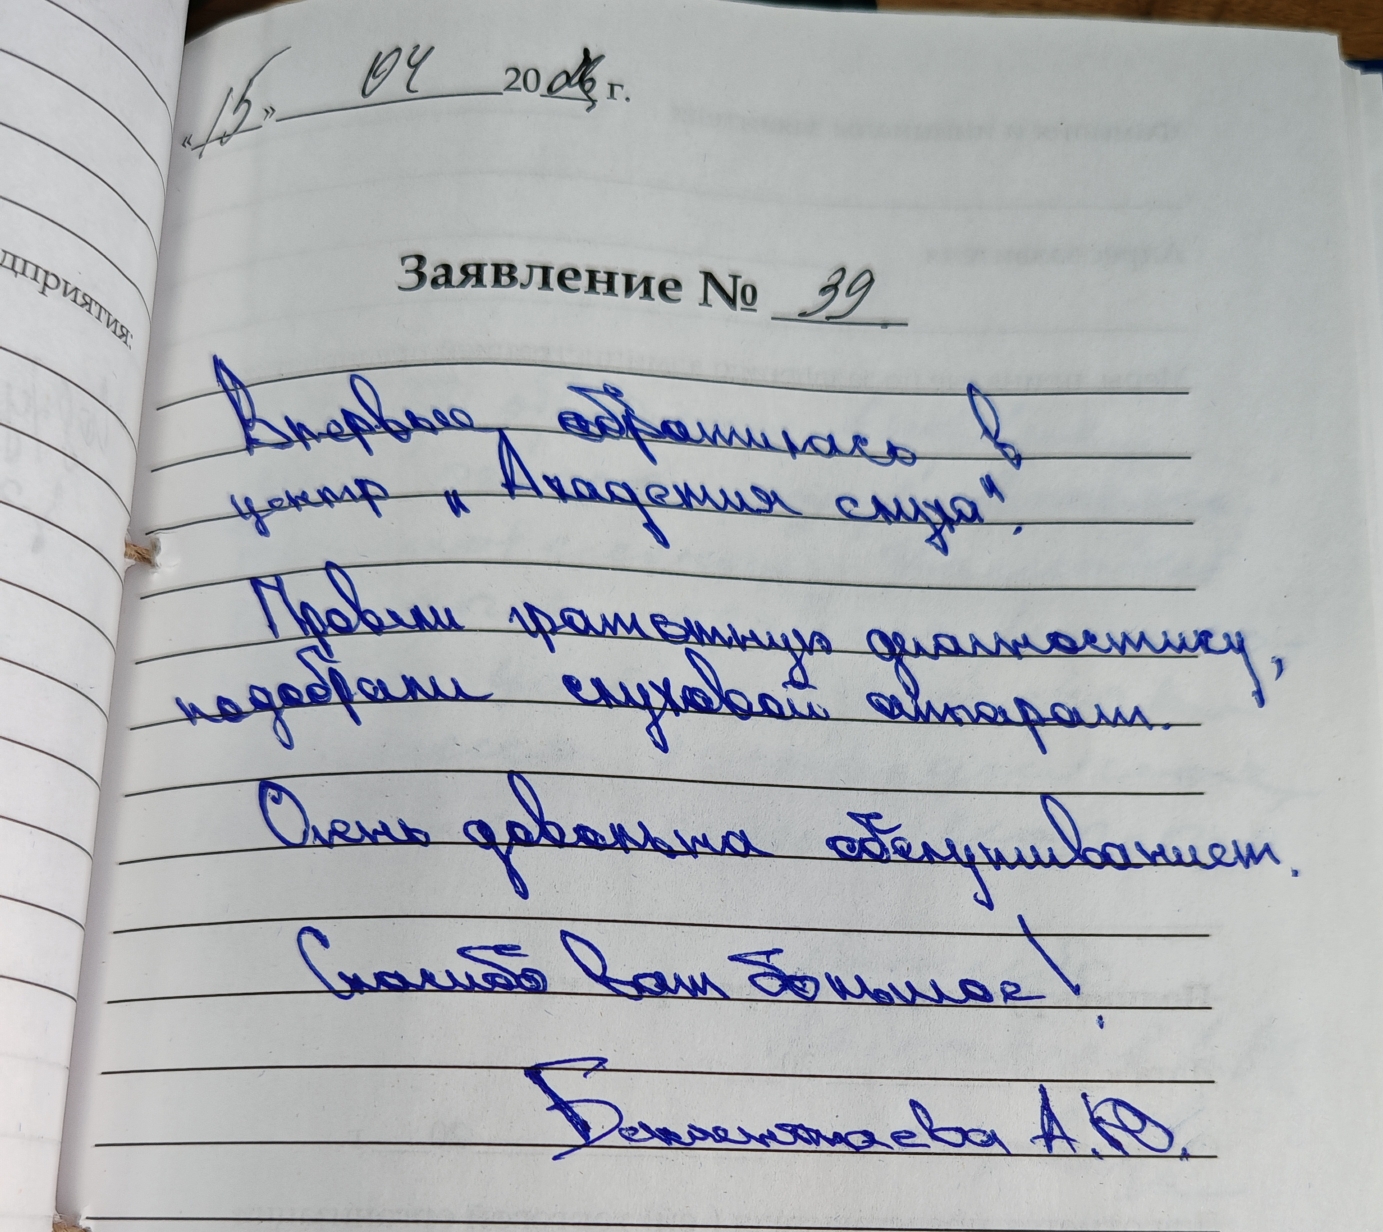 «15» 04 20 г.
дприятия:
Заявление № 39
Впервые обратилась в
центр "Академия слуха".
Провели грамотную диагностику,
подобрали слуховой аппарат.
Очень довольна обслуживанием.
Спасибо вам большое!
А.Ю.